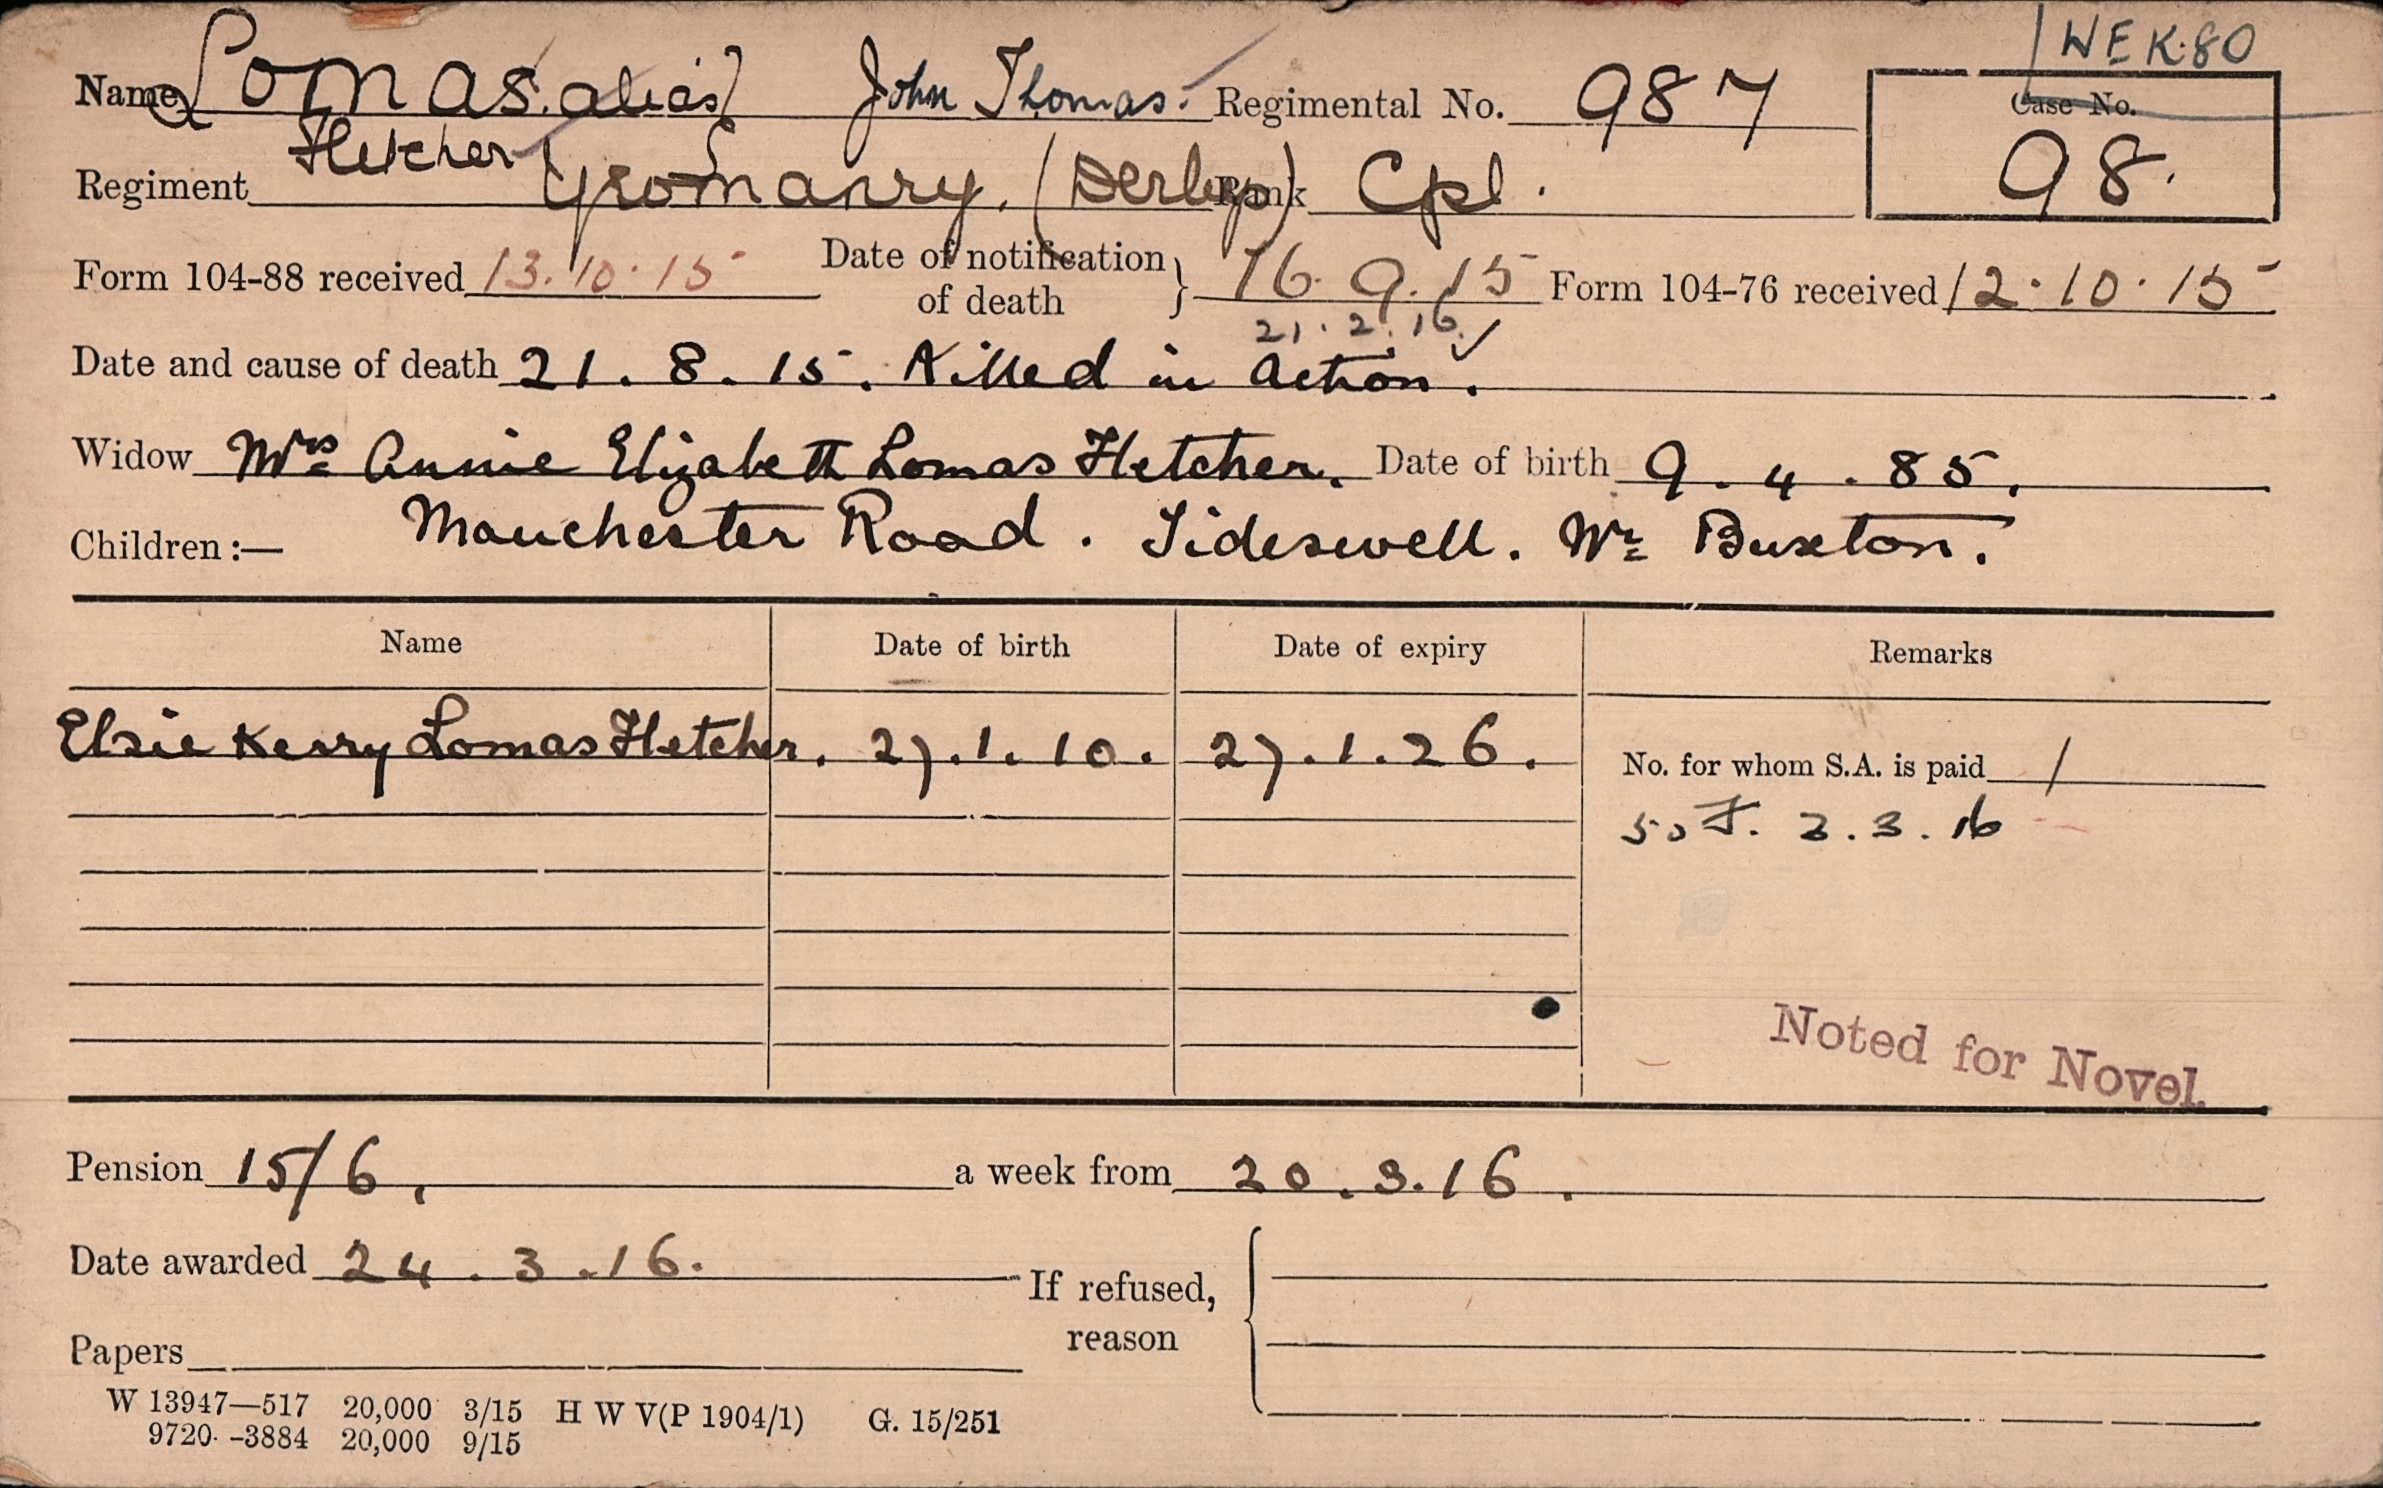 WEK.80
Name Lomas. alias John Thomas. Regimental No. 987 Case No.
Fletcher 98.
Regiment Yeomanry. (Derby) Rank Cpl.
Form 104-88 received 13.10.15 Date of notification of death } 16.9.15 Form 104-76 received 12.10.15
21.2.16.
Date and cause of death 21.8.15. Killed in Action.
Widow Mrs Annie Elizabeth Lomas Fletcher. Date of birth 9.4.85.
Children:— Manchester Road. Tideswell. Nr Buxton.
Name Date of birth Date of expiry Remarks
Elsie Kerry Lomas Fletcher. 27.1.10. 27.1.26. No. for whom S.A. is paid 1
3.16
Noted for Novel.
Pension 15/6. a week from 20.3.16.
Date awarded 24.3.16.
If refused, reason
Papers
W 13947—517 20,000 3/15 H W V(P 1904/1) G. 15/251
9720 -3884 20,000 9/15